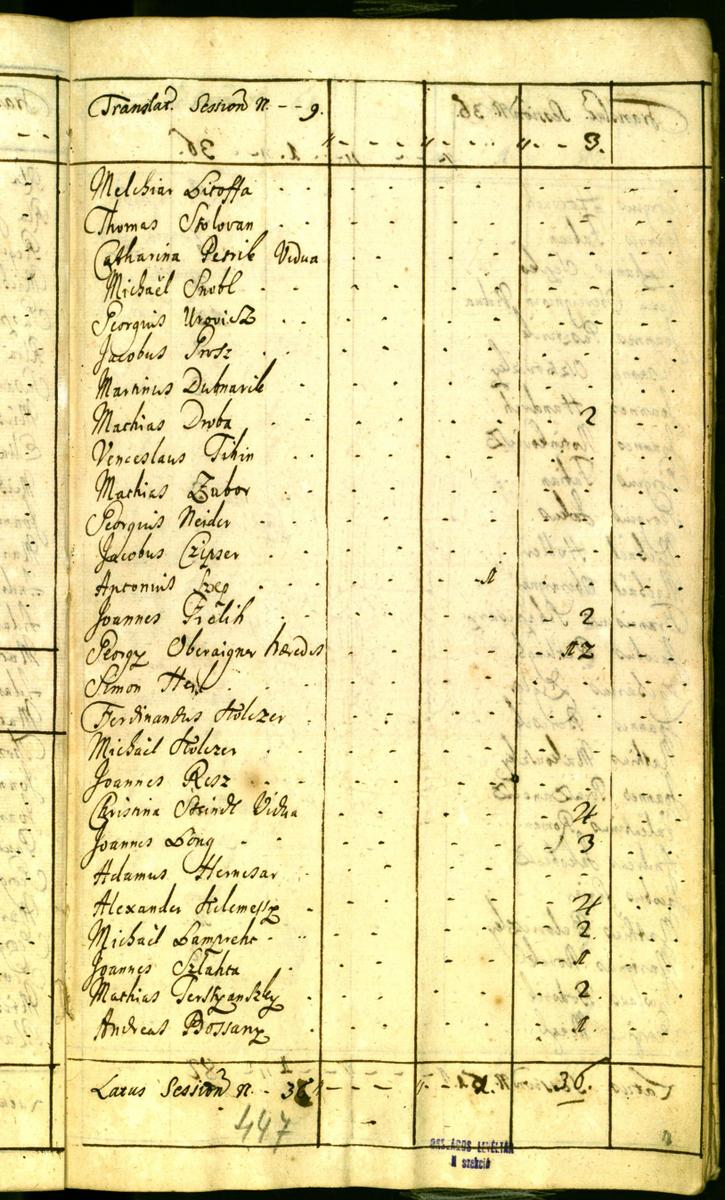 Translat. Session N. - - 9. 3.
Melchiar Licoffa
Thomas Stolovan
Catharina Petrik Vidua
Michaël Snobl
Georgius Urovicz
Jacobus Prosz
Martinus Dubnarik
Mathias Droba 2
Venceslaus Tihin
Mathias Zubor
Georgius Neider
Jacobus Czipser
Antonius 1
Joannes Frölih 2
Georgy Oberaigner hæredes 12
Simon
Ferdinandus Holczer
Michaël Holczer
Joannes Resz
Christina Steindl Vidua 4
Joannes Long 3
Adamus Hernesar
Alexander Kelemessy 4
Michaël Lamprecht 2
Joannes Szlahta 1
Mathias Terstyanszky 2
Andreas Bossany 1
Latus Session N. - 36 1. 36.
447
ORSZÁGOS LEVÉLTÁR
N szekció